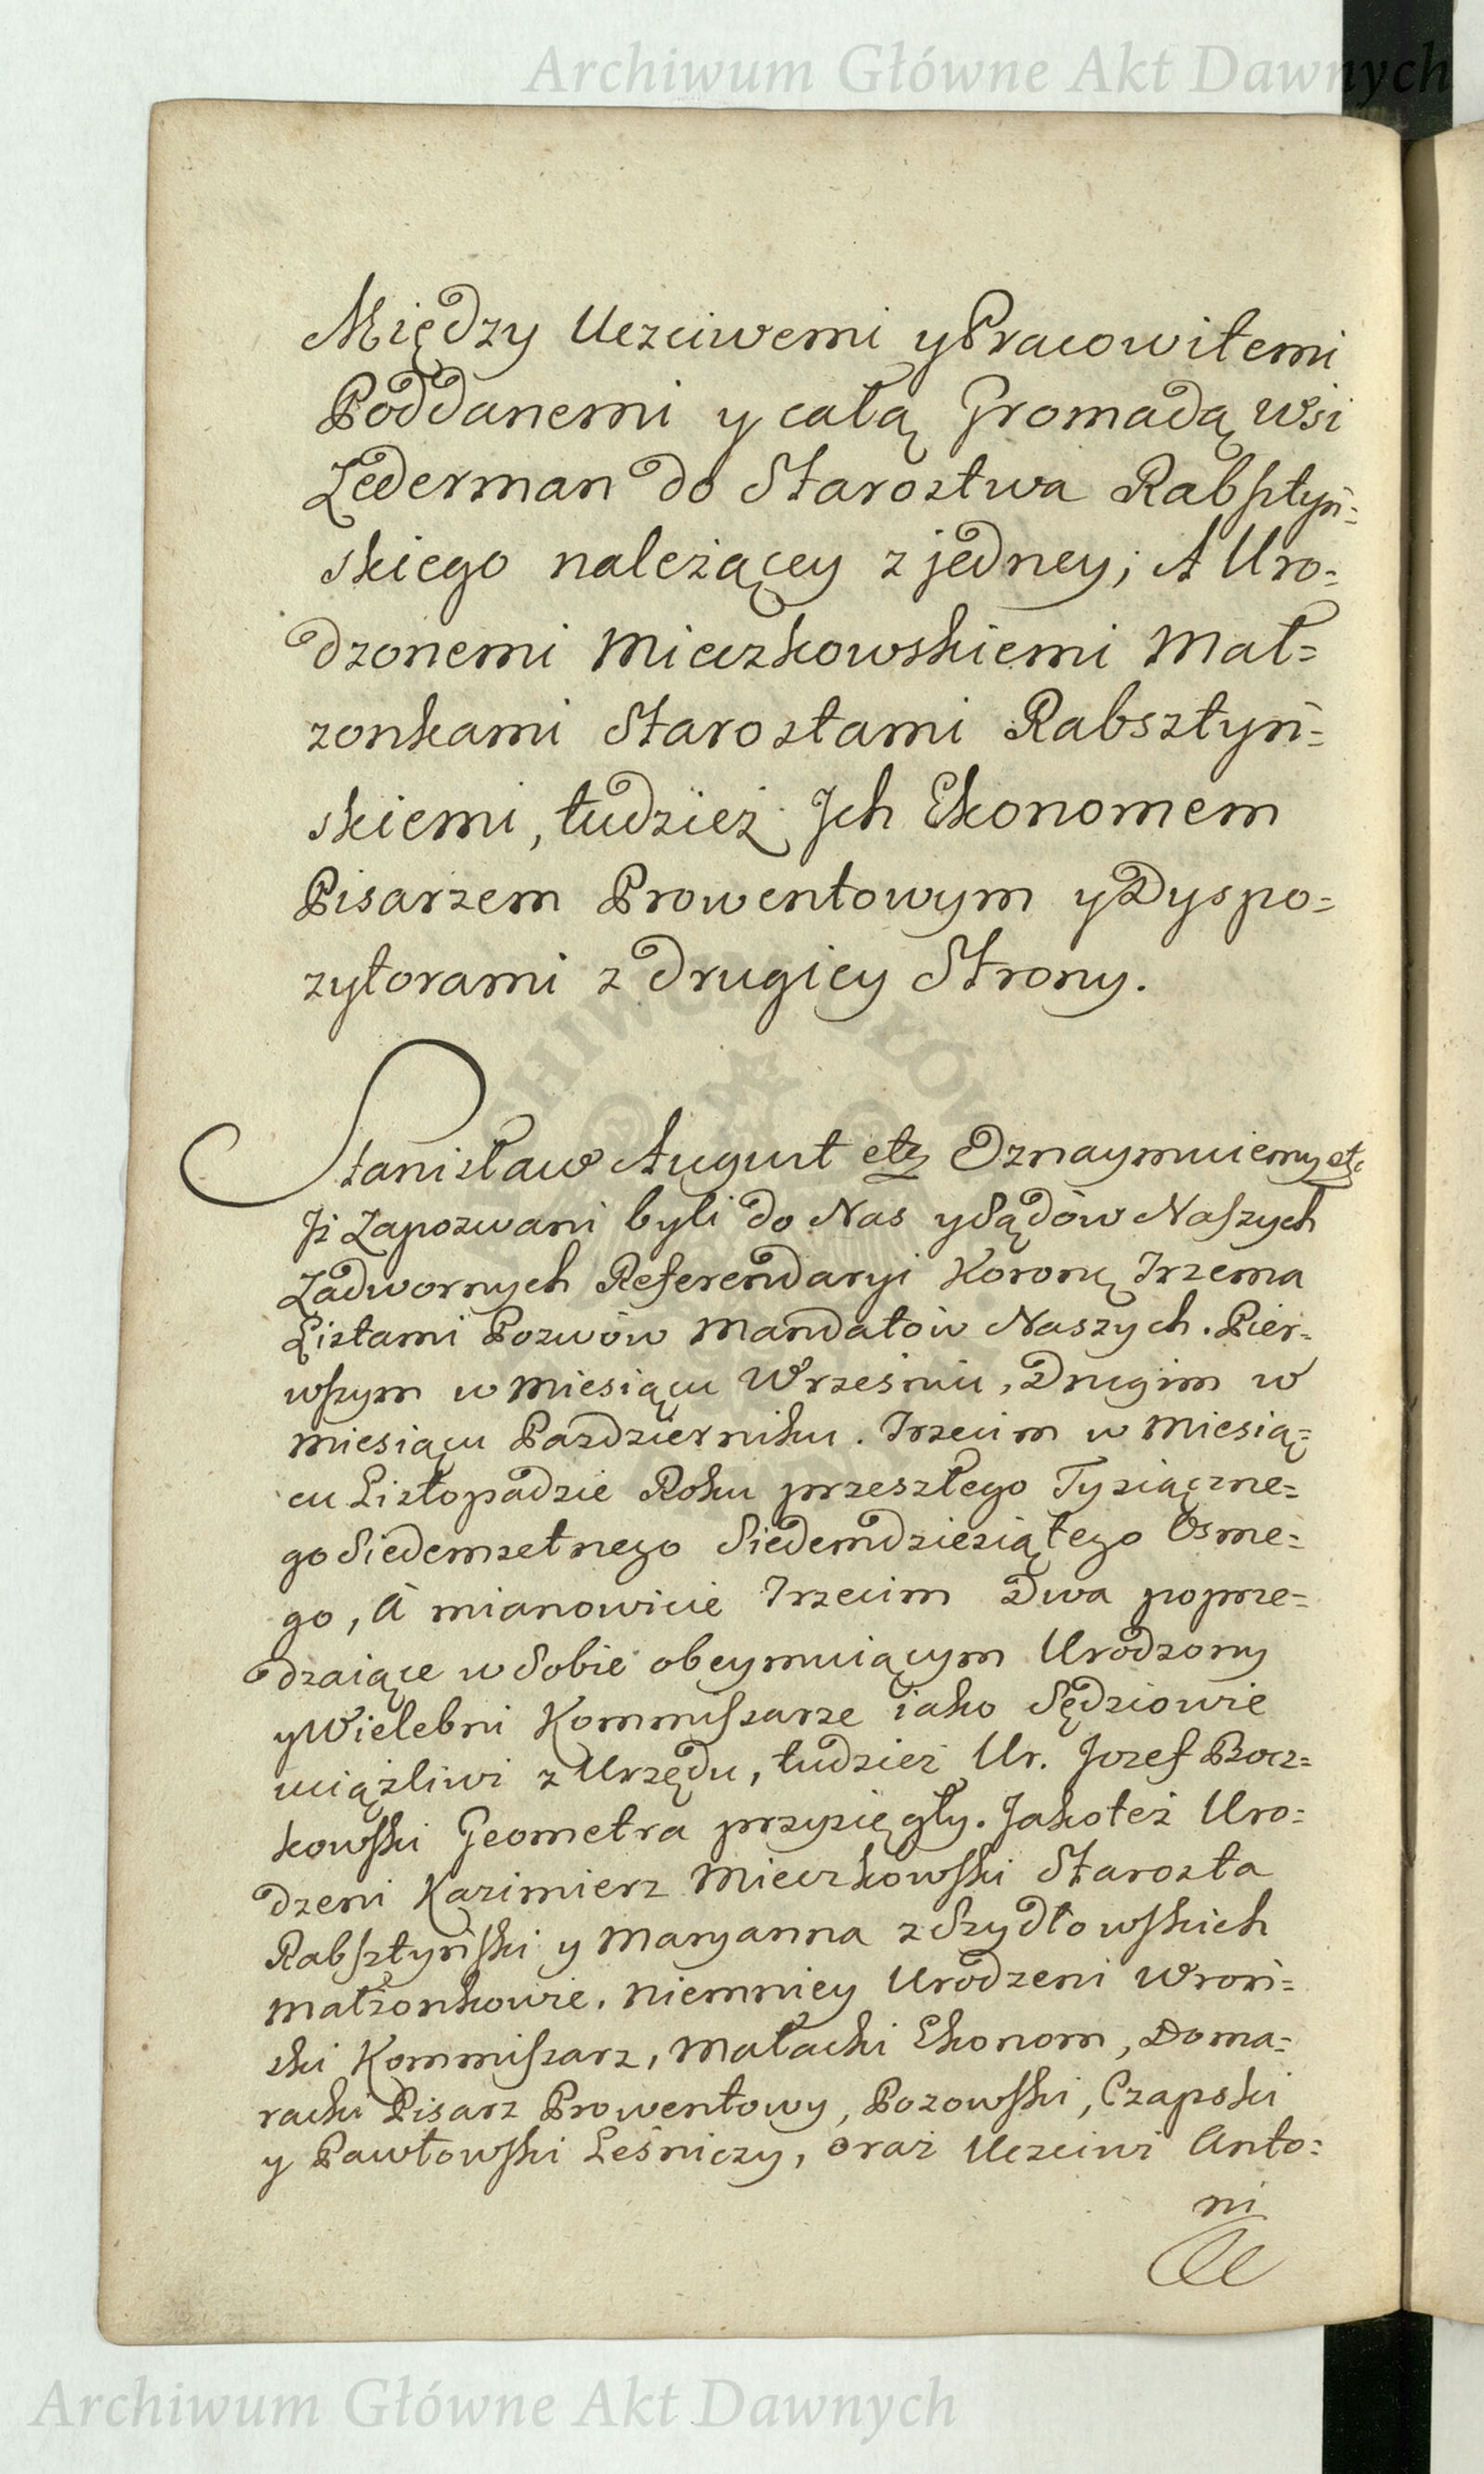 Archiwum Główne Akt Dawnych
Między Uczciwemi y Pracowitemi
Poddanemi y całą Gromadą Wsi
Zederman do Starostwa Rabsztyń=
skiego należącey z jedney; A Uro=
dzonemi Mieczkowskiemi Mał=
zonkami Starostami Rabsztyń=
skiemi, tudzież Jch Ekonomem
Pisarzem Prowentowym y Dyspo=
zytorami z drugiey Strony.
Stanisław August etc Oznaymuiemy etc
Jż Zapozwani byli do Nas y Sądów Naszych
Zadwornych Referendaryi Koronę Trzema
Listami Pozwów Mandatów Naszych. Pier=
wszym w Miesiącu Wrześniu, Drugim w
Miesiącu Pazdzierniku. Trzecim w Miesią=
cu Listopadzie Roku przeszłego Tysiączne=
go Siedemsetnego Siedemdziesiątego Osme=
go, A mianowicie Trzecim Dwa poprze=
dzaiące w Sobie obeymuiącym Urodzony
y Wielebni Kommissarze iako Sędziowie
uciążliwi z Urzędu, tudzież Ur. Jozef Bocz=
kowski Geometra przysięgły. Jakoteż Uro=
dzeni Kazimierz Mieczkowski Starosta
Rabsztyński y Maryanna z Szydłowskich
Małżonkowie, niemniey Urodzeni Wroń=
ski Kommissarz, Małachi Ekonom, Doma=
racki Pisarz Prowentowy, Pozowski, Czapski
y Pawłowski Leśniczy, oraz Uczciwi Anto=
ni
Archiwum Główne Akt Dawnych